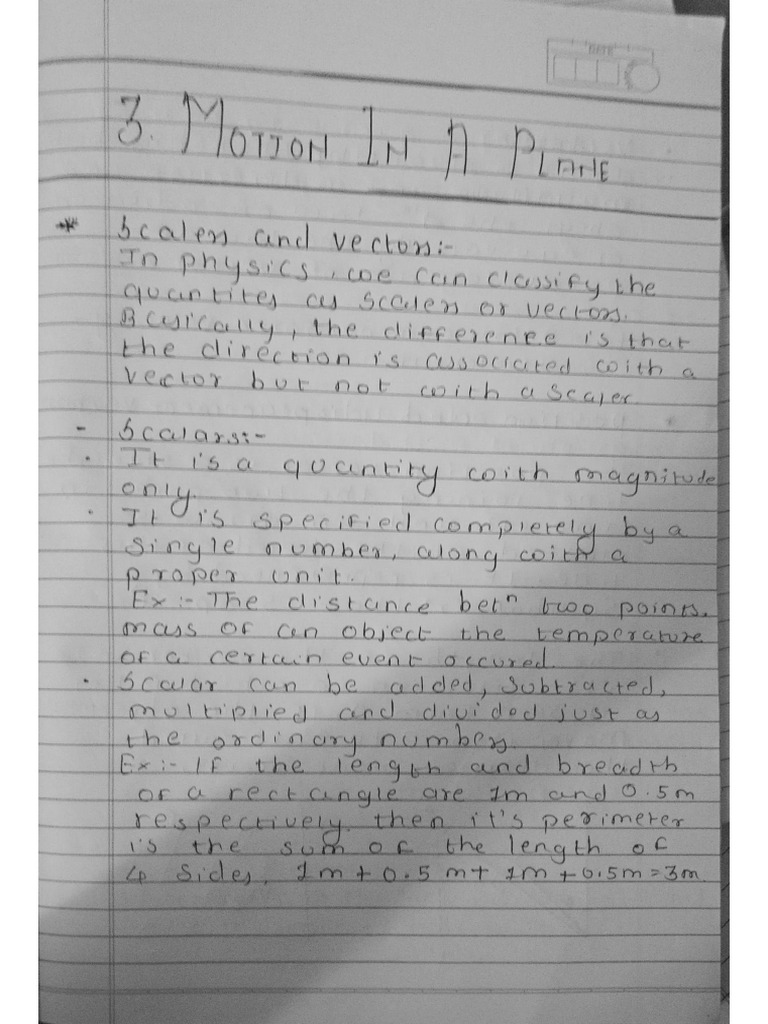 DATE
3. MOTION IN A PLANE
* Scalers and vectors:-
In physics, we can classify the
quantites as scalers or vectors.
Basically, the difference is that
the direction is associated with a
vector but not with a scaler
- Scalars:-
. It is a quantity with magnitude
only.
. It is specified completely by a
single number, along with a
proper unit.
Ex :- The distance betⁿ two points,
mass of an object the temperature
of a certain event occured.
. Scalar can be added, subtracted,
multiplied and divided just as
the ordinary numbers
Ex :- If the length and breadth
of a rectangle are 1m and 0.5m
respectively. then it's perimeter
is the sum of the length of
4 sides, 1m + 0.5 m + 1m + 0.5m = 3m